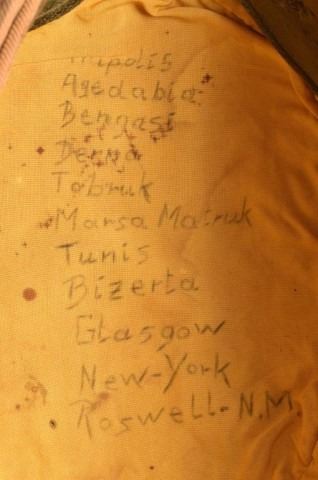 Tripolis
Agedabia
Bengasi
Derna
Tobruk
Marsa Matruk
Tunis
Bizerta
Glasgow
New-York
Roswell-N.M.